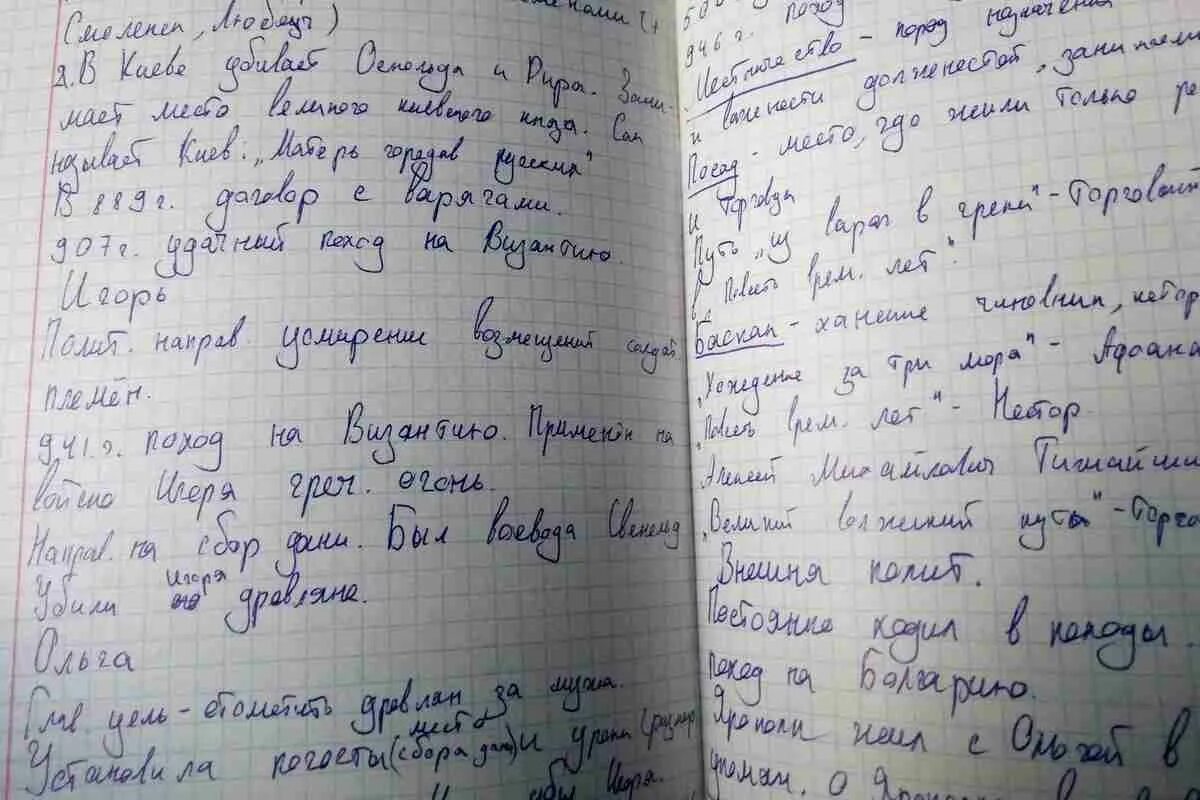 менами (+
Смоленск, Любечь)
2. В Киеве убивает Оскольда и Дира. Зани-
мает место великого киевского князя. Сам
называет Киев: „Матерь городов русских"
В 889 г. договор с варягами.
907 г. удачный поход на Византию.
Игорь
Полит. направ. усмирение возмещений солдат
племён.
941 г. поход на Византию. Применён на
войско Игоря греч. огонь.
Направ. на сбор дани. Был воевода Свенельд
Убили Игоря древляне.
Ольга
Глав. цель - отомстить древлян за мужа.
Установила погосты (место сбора дани) и уроки (размер
Игоря.
поход
946 г.
Местничество - поряд назначения
и важности должностей, занимаем
Посад - место, где жили только ре
и торговцы
Путь „из варяг в греки" - Торговый
в Повесть врем. лет".
Баскак - ханские чиновник, котор
„Хождение за три моря" - Афана
„Повесть врем. лет" - Нестор.
Алексей Михайлович Тишайши
„Великий волжский путь" - Торго
Внешня полит.
Постоянно ходил в походы.
Поход на Болгарию.
Ярополк жил с Ольгой в
упомян. о